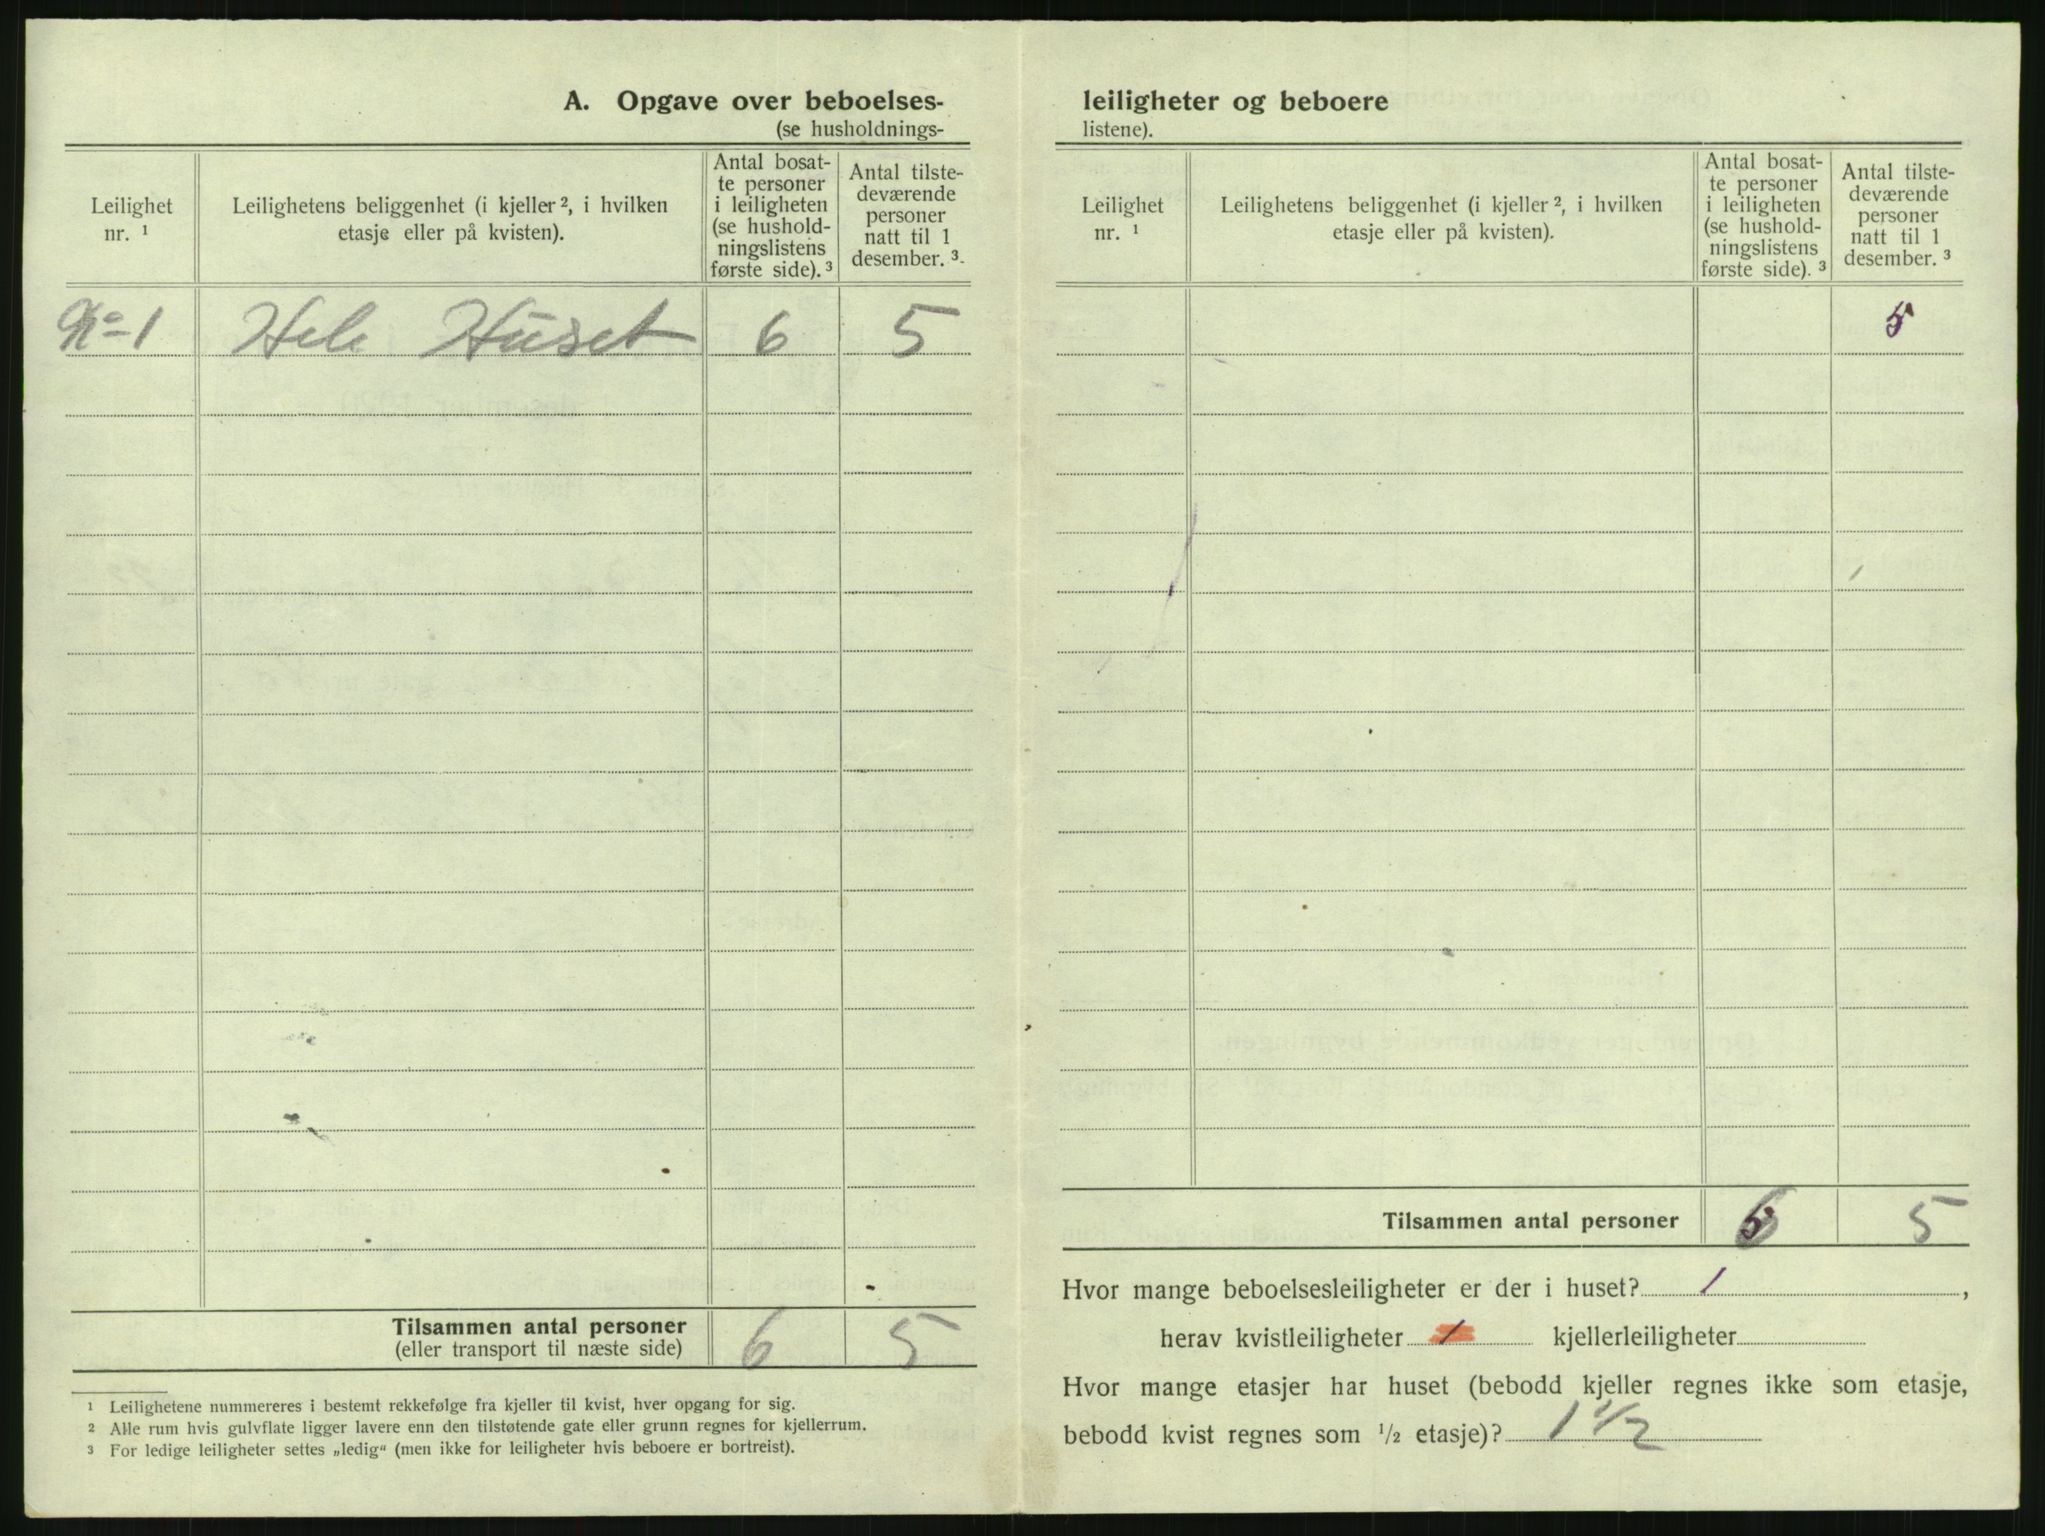 A. Opgave over beboelses-
(se husholdnings-
Leilighet nr. ¹
Leilighetens beliggenhet (i kjeller ², i hvilken
etasje eller på kvisten).
Antal bosat-
te personer
i leiligheten
(se hushold-
ningslistens
første side). ³
Antal tilste-
deværende
personer
natt til 1
desember. ³
No 1 Hele Huset 6 5
Tilsammen antal personer 6 5
(eller transport til næste side)
¹ Leilighetene nummereres i bestemt rekkefølge fra kjeller til kvist, hver opgang for sig.
² Alle rum hvis gulvflate ligger lavere enn den tilstøtende gate eller grunn regnes for kjellerrum.
³ For ledige leiligheter settes „ledig“ (men ikke for leiligheter hvis beboere er bortreist).
leiligheter og beboere
listene).
Leilighet
nr. ¹
Leilighetens beliggenhet (i kjeller ², i hvilken
etasje eller på kvisten).
Antal bosat-
te personer
i leiligheten
(se hushold-
ningslistens
første side). ³
Antal tilste-
deværende
personer
natt til 1
desember. ³
5
Tilsammen antal personer 6 5
Hvor mange beboelsesleiligheter er der i huset? 1,
herav kvistleiligheter 1 kjellerleiligheter
Hvor mange etasjer har huset (bebodd kjeller regnes ikke som etasje,
bebodd kvist regnes som ½ etasje)? 1 ½